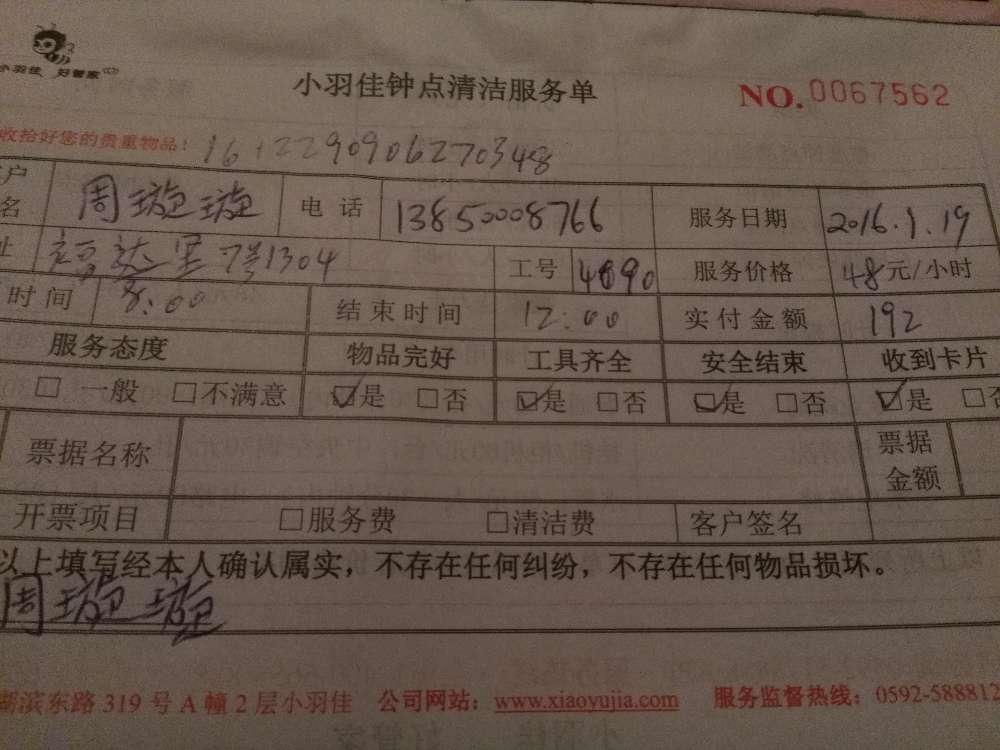 小羽佳 好管家
小羽佳钟点清洁服务单 NO.0067562
收拾好您的贵重物品! 1612290906270348
户名 周璇璇 电话 13850008766 服务日期 2016.1.19
址 福达里7号1304 工号 4890 服务价格 48元/小时
时间 8:00 结束时间 12:00 实付金额 192
服务态度 物品完好 工具齐全 安全结束 收到卡片
□ 一般 □不满意 ☑是 □否 ☑是 □否 ☑是 □否 ☑是 □否
票据名称 票据金额
开票项目 □服务费 □清洁费 客户签名
以上填写经本人确认属实，不存在任何纠纷，不存在任何物品损坏。
周璇璇
湖滨东路 319 号 A 幢 2 层小羽佳 公司网站：www.xiaoyujia.com 服务监督热线：0592-588812